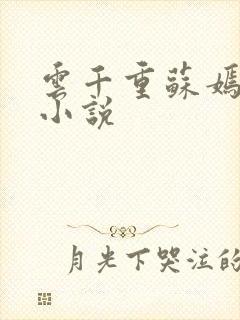 雲千重蘇嫣
小說
月光下哭泣的